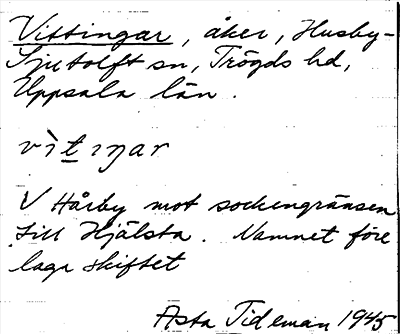 Vittingar, åker, Husby-
Sjutolft sn, Trögds hd,
Uppsala län.
vìt̲ıŋar
V Hårby mot sockengränsen
till Hjälsta. Namnet före
laga skiftet
Asta Tideman 1945